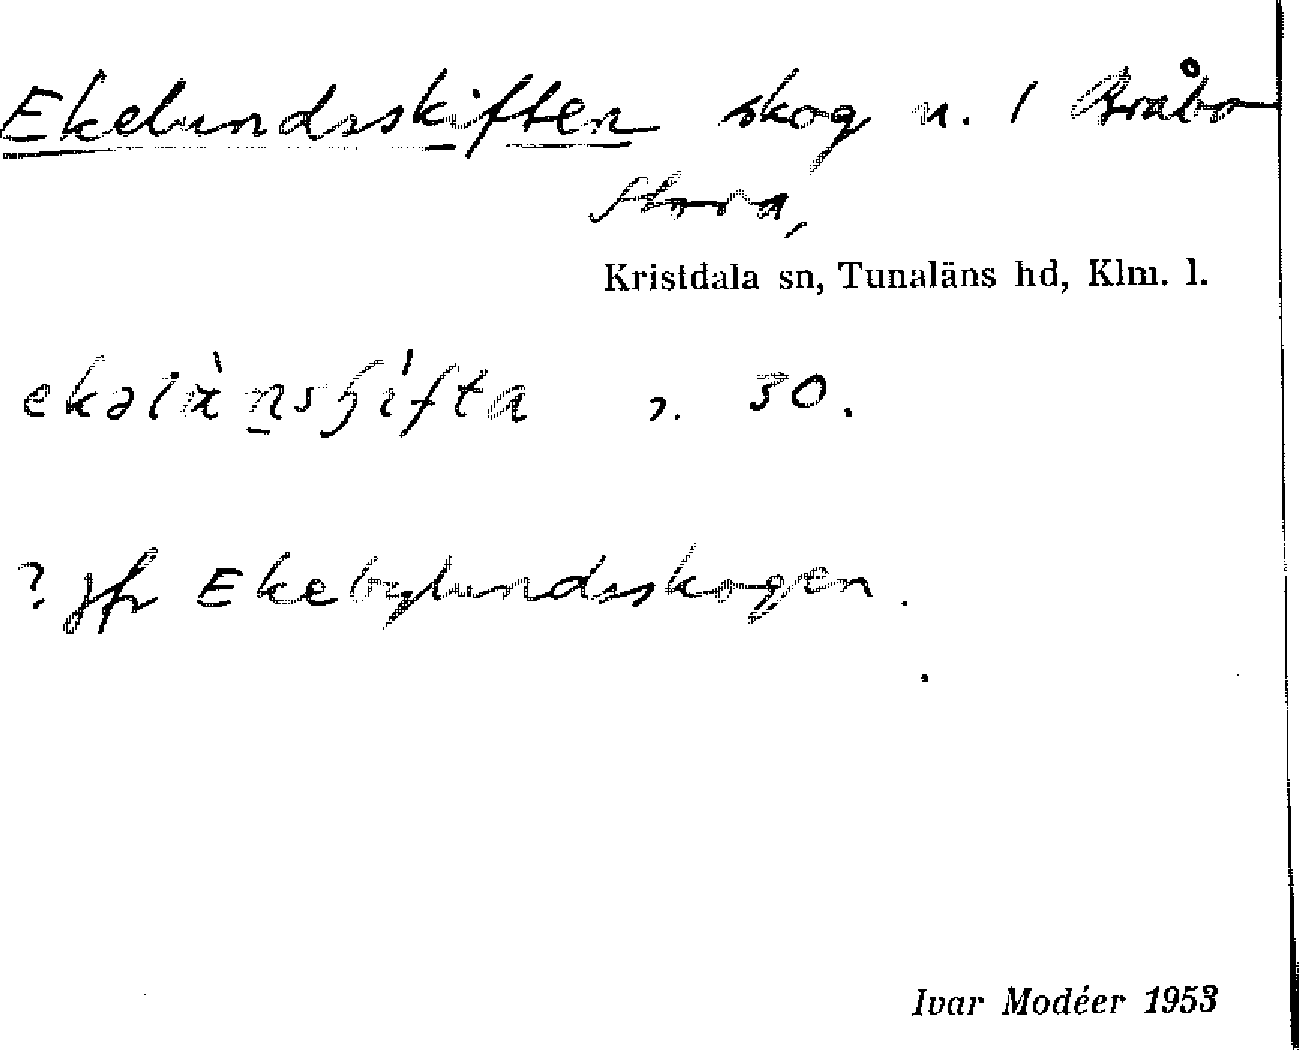 Ekelundsskiften skog n. 1 Bråbo
Stora,
Kristdala sn, Tunaläns hd, Klm. l.
s. 30.
? jfr Ekebylundsskogen.
Ivar Modéer 1953